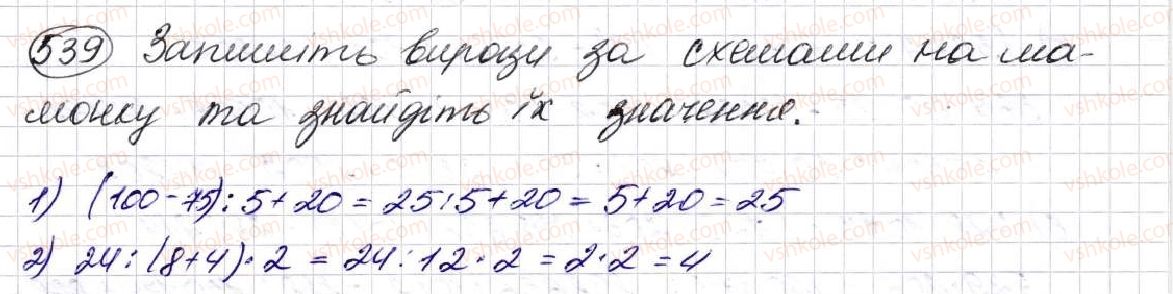 539 Запишіть вирази за схемами на ма-
люнку та знайдіть їх значення.
1) (100-75):5+20=25:5+20=5+20=25
2) 24:(8+4)·2=24:12·2=2·2=4